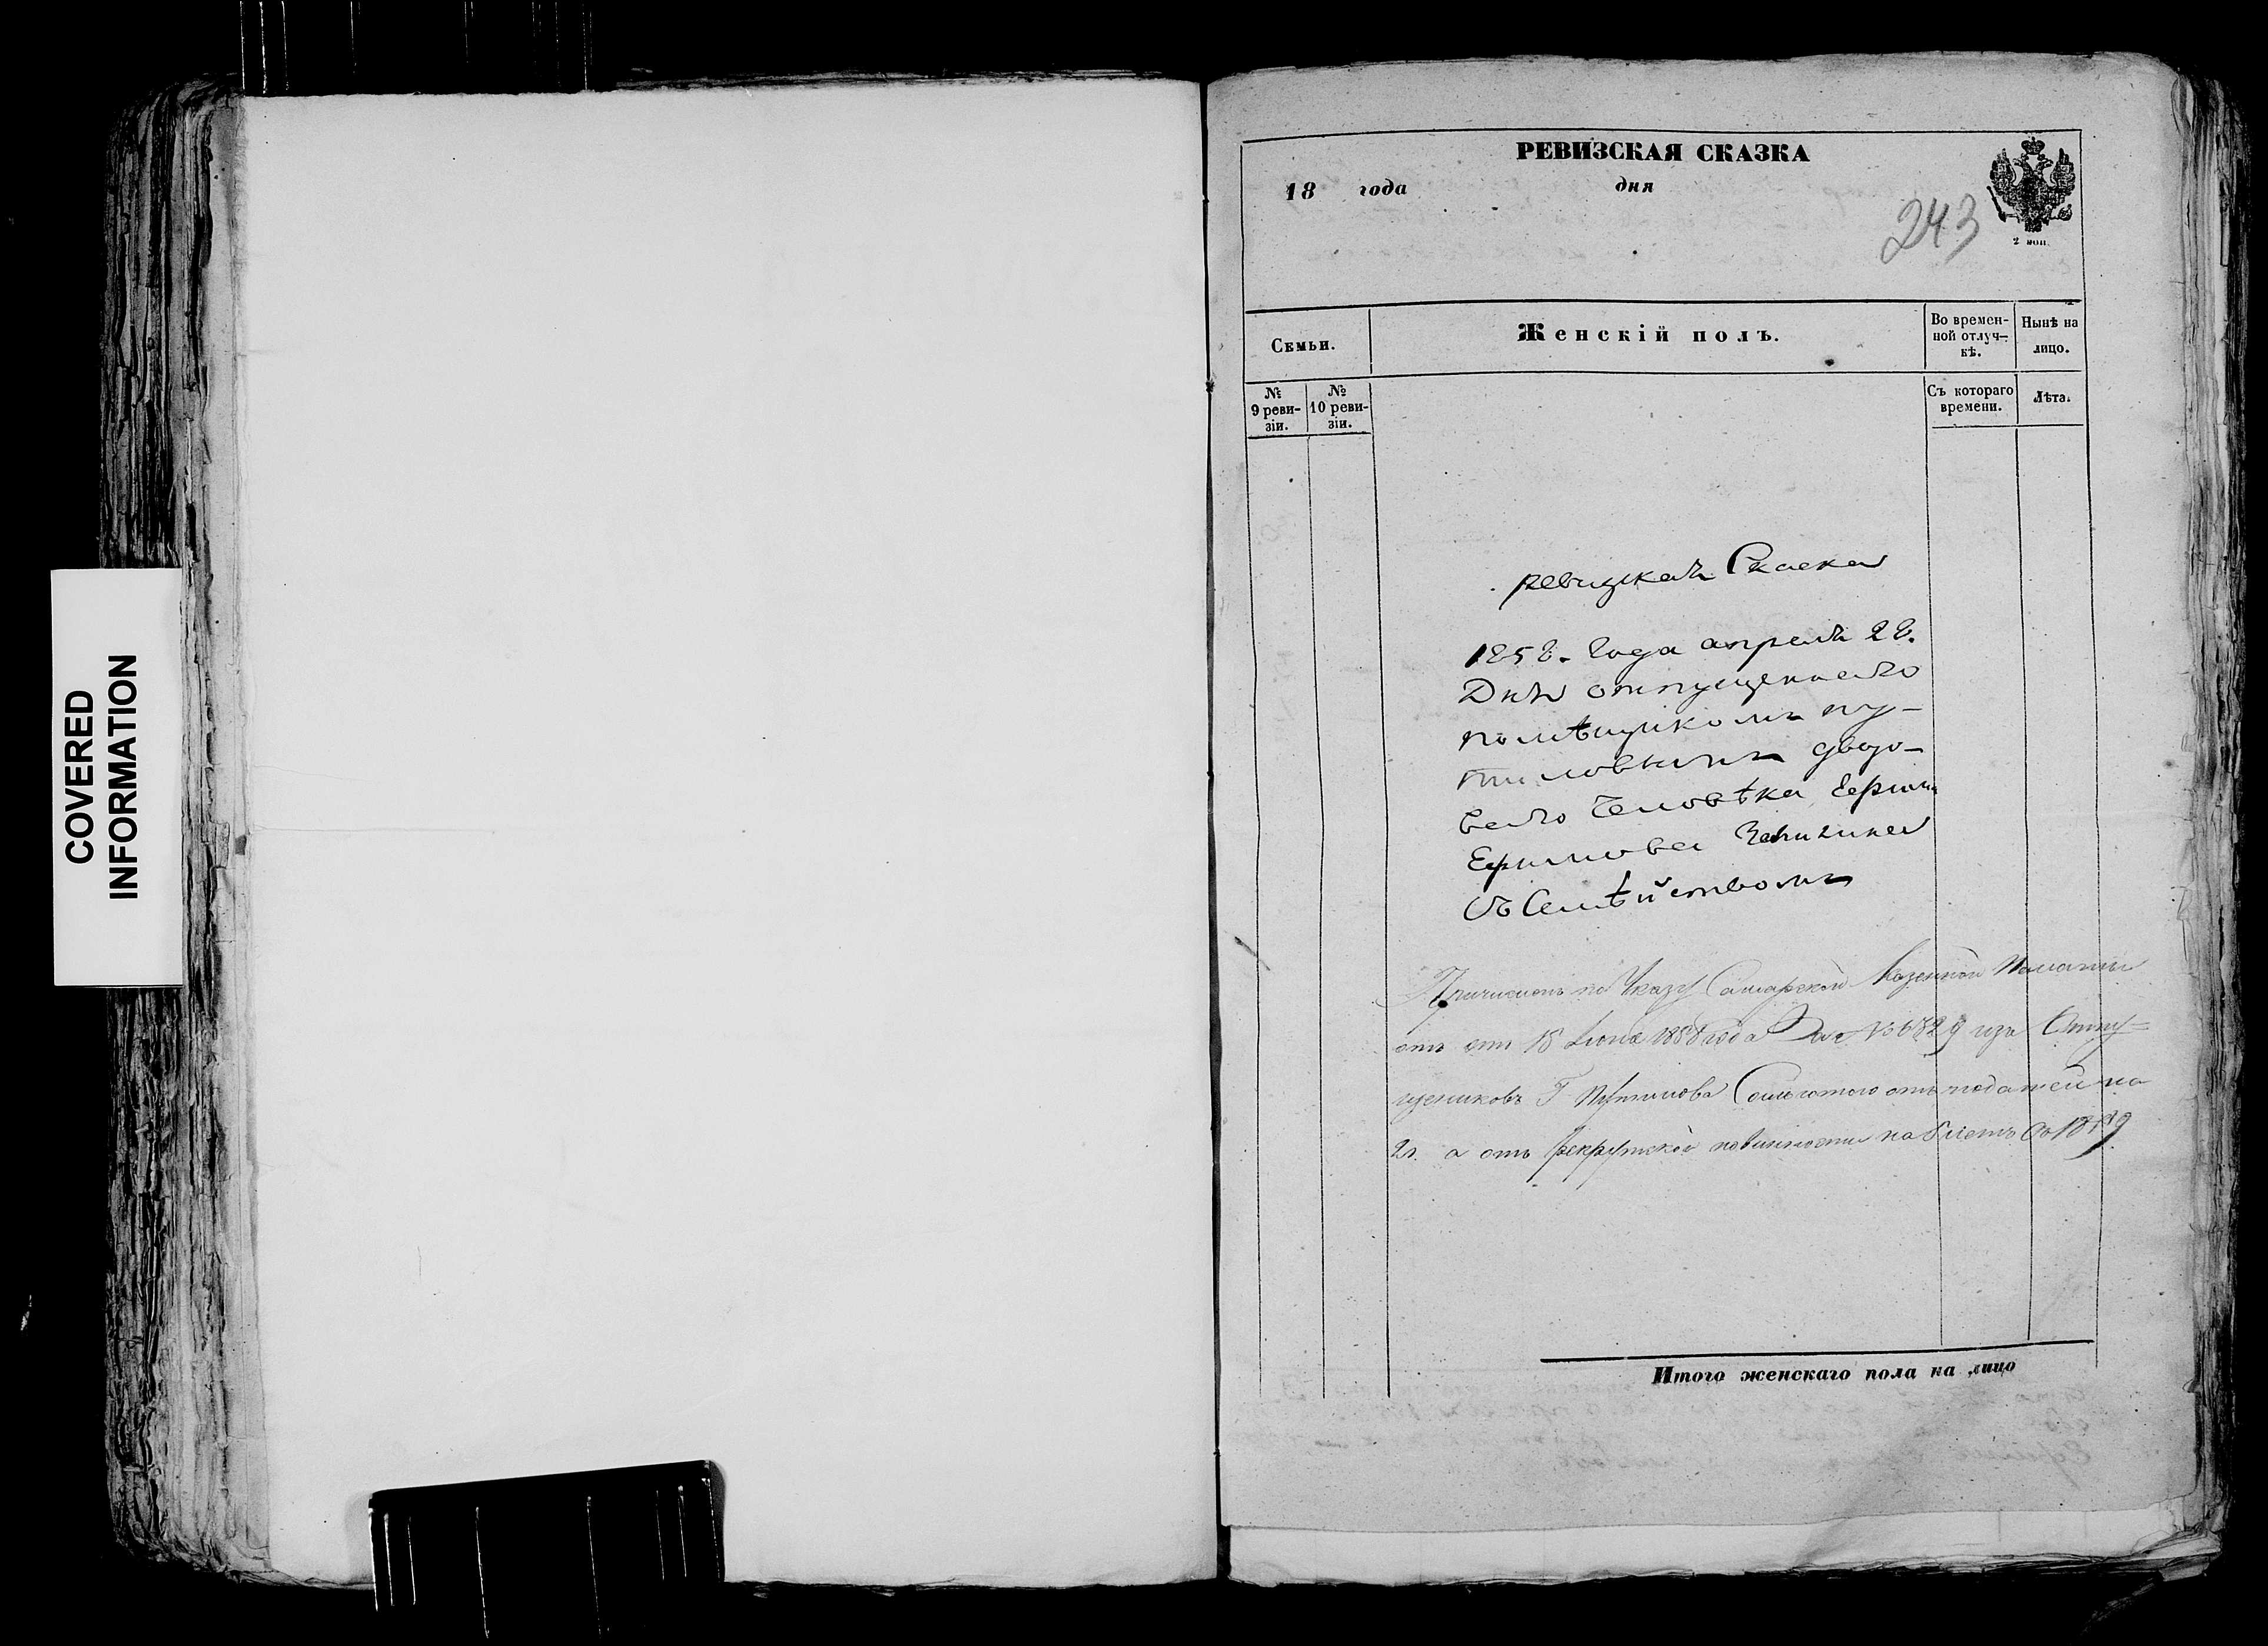 COVERED
INFORMATION
РЕВИЗСКАЯ СКАЗКА
18 года дня
243
2 коп.
Семьи.
Женскій полъ.
Во времен-
ной отлуч-
кѣ.
Нынѣ на
лицо.
№
9 реви-
зіи.
№
10 реви-
зіи.
Съ котораго
времени.
Лѣта.
ревизкая Скаска
1858. Года апреля 28.
Дня отпущеннаго
помѣщикомъ пу-
тиловымъ дворо-
ваго человѣка Ефима
Ефимова
съ Семѣйствомъ
Причисленъ по Указу Самарской Казенной Палаты
отъ 18 Іюня 1858 года За № изъ Отпу-
щениковъ Г Путилова Со льготою отъ податей на
2 г. а отъ рекрутской повинности на лѣтъ Съ
Итого женскаго пола на лицо